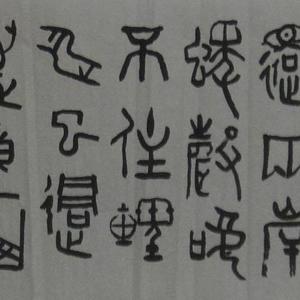 還兩岸
猿聲啼
不住輕
舟已過